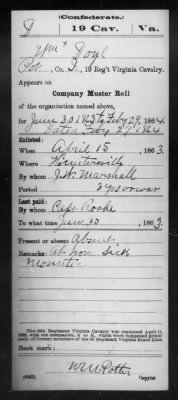 (Confederate.)
D 19 Cav. Va.
Wm
Co. D, 19 Reg't Virginia Cavalry.
Appears on
Company Muster Roll
of the organization named above,
for June 30 1863 to Feby 29, 1864.
Dated Feby 27 1864
Enlisted:
When April 15, 1863
Where
By whom J. W. Marshall
Period 3 yrs or war
Last paid:
By whom Capt
To what time June 30, 1863
Present or absent Absent
Remarks: At home Sick
The 19th Regiment Virginia Cavalry was organized April 11,
1863, with ten companies, A to K, which were composed princi-
pally of former members of the 3d Regiment Virginia State Line.
Book mark:
W W Potter
Copyist.